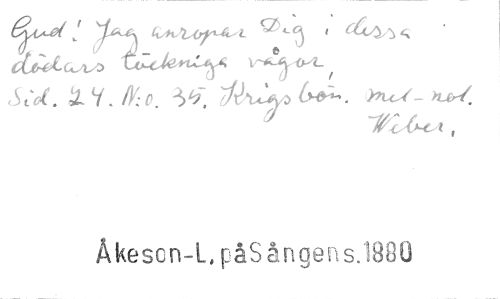 Gud! Jag anropar Dig i dessa
dödars töckniga vågor,
Sid. 24. N:o. 35. Krigsbön. mel-not.
Weber.
Åkeson-L, påSångens.1880